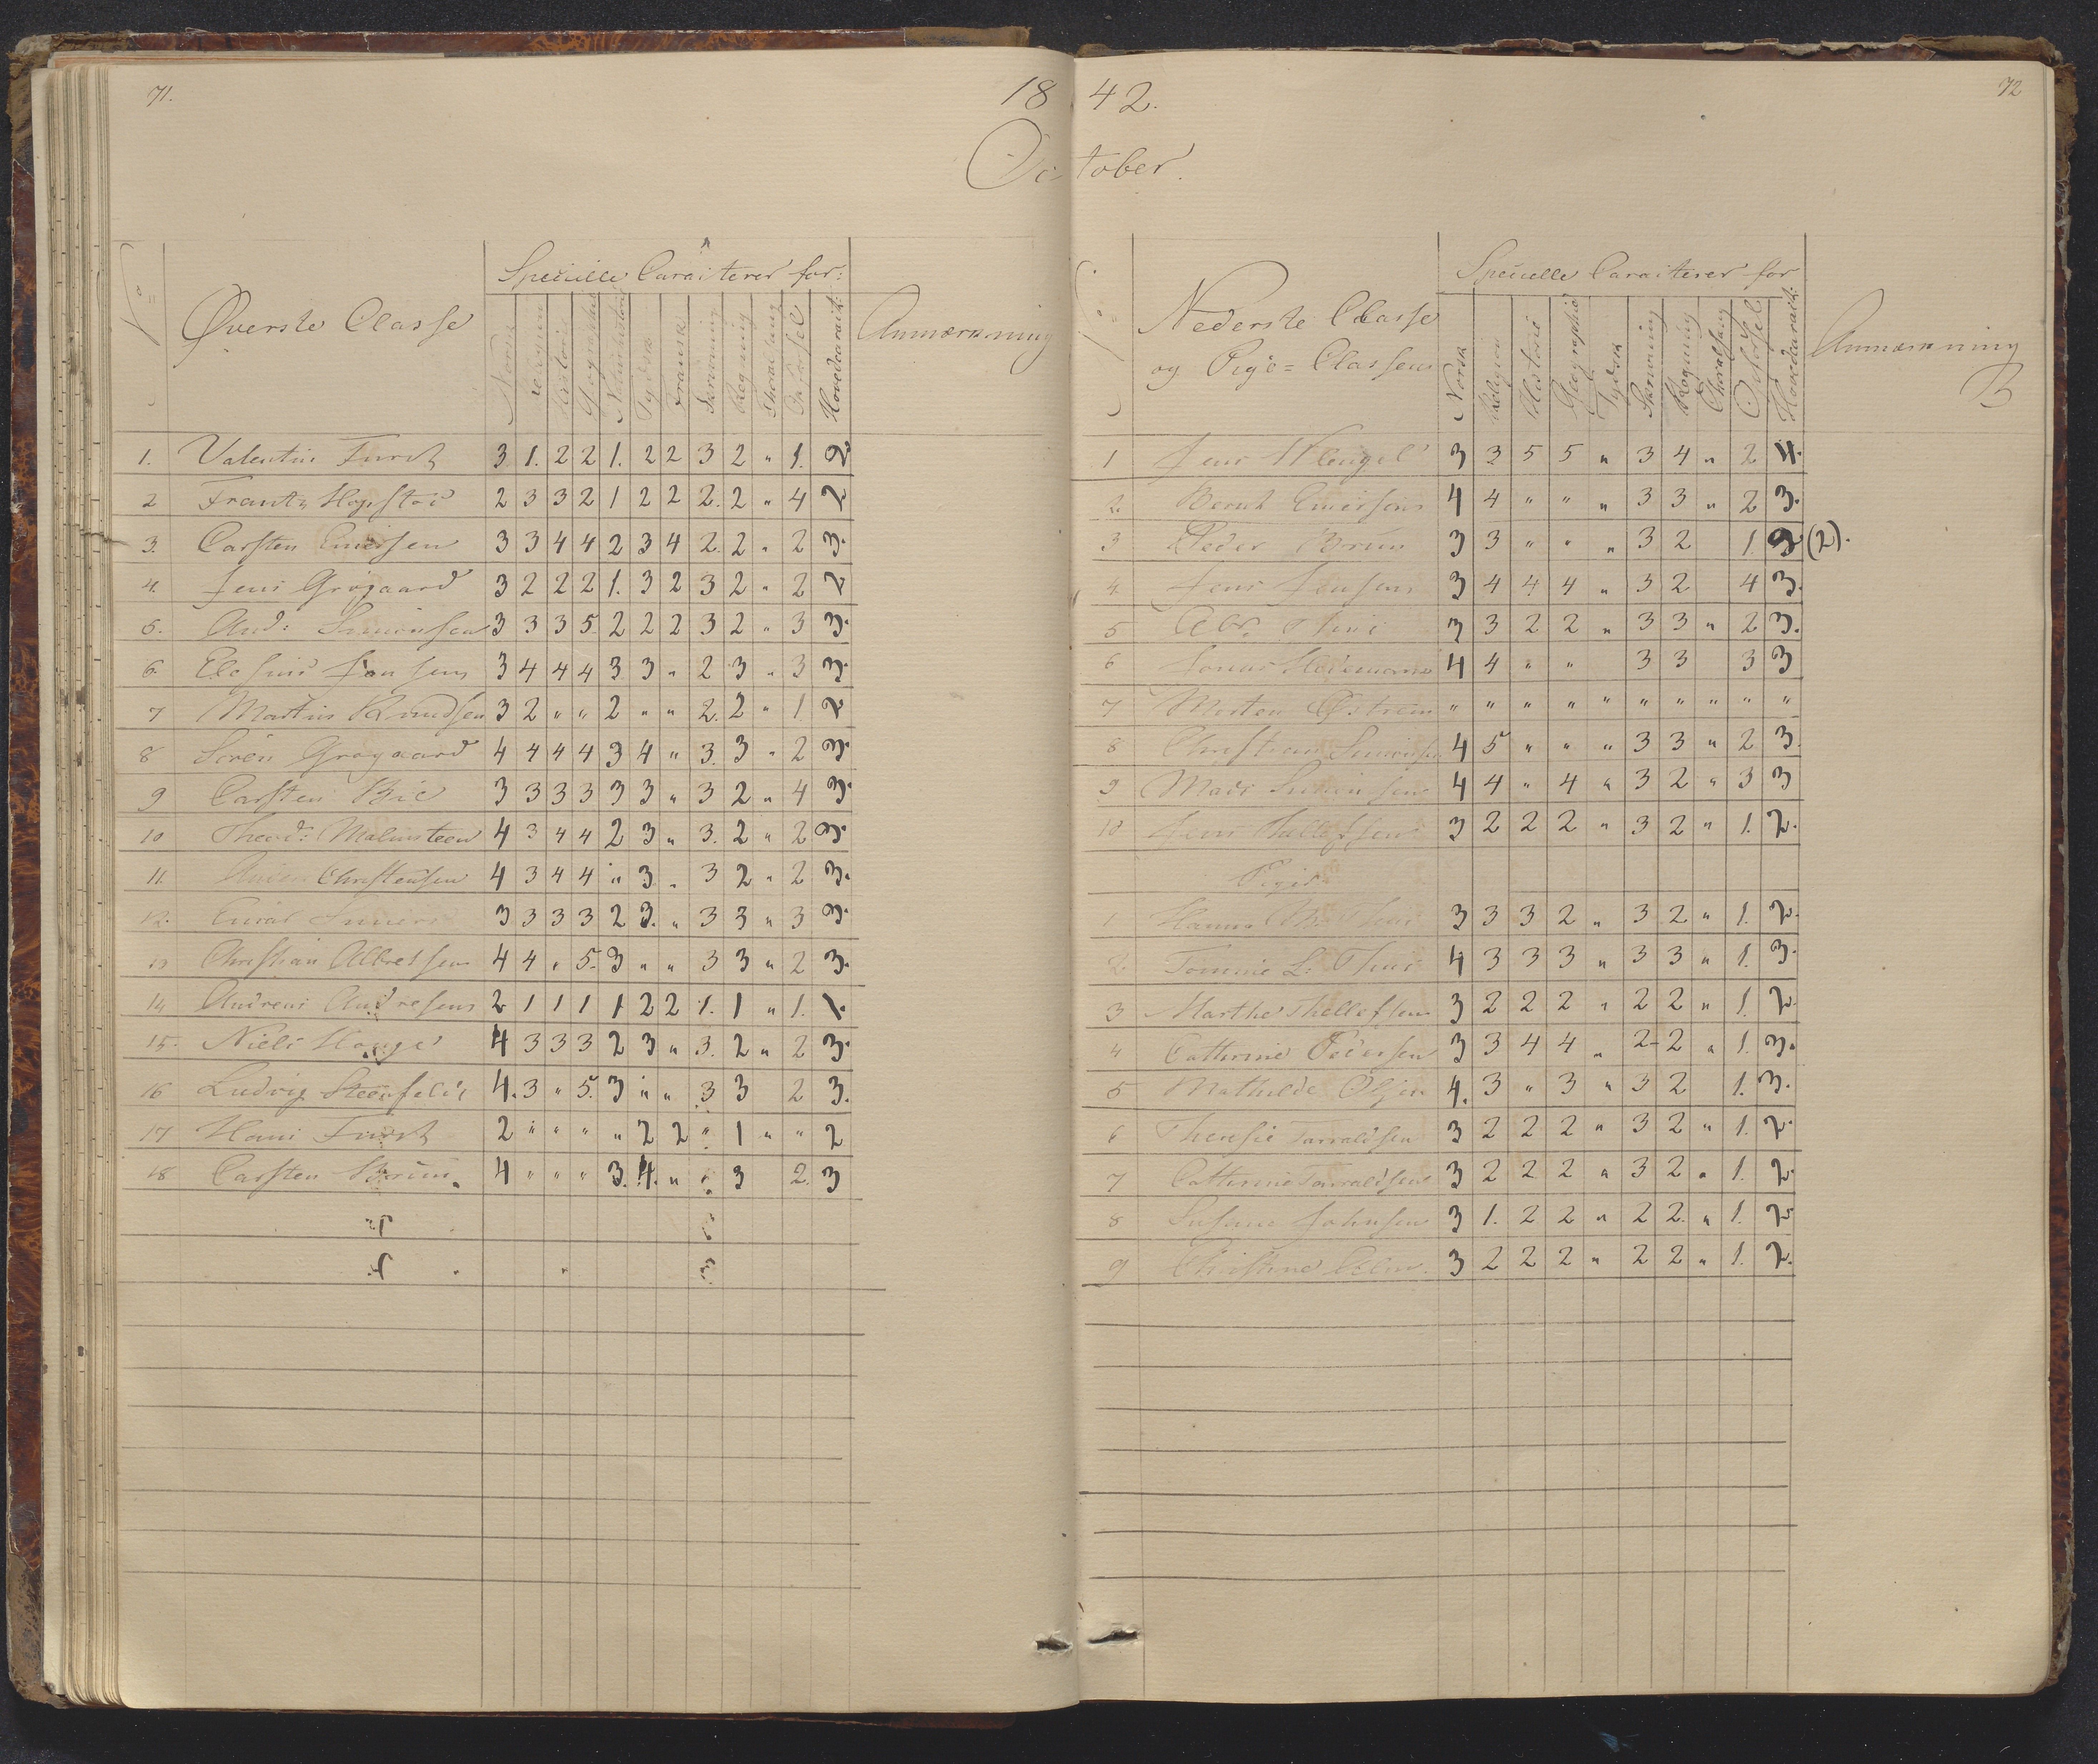 71.
18 42.
72
October.
No
Øverste Classe
Specielle Caracterer for:
Norsk Religion Historie Geographie Naturhistorie Tydsk Fransk Skrivning Regning Choralsang Opførsel Hovedcarakt:
Anmærkning
1. Valentin Furst 3 1. 2 2 1. 2 2 3 2 " 1. 2
2 Frantz Hopstoc 2 3 3 2 1 2 2 2. 2 " 4 2
3. Carsten Ericksen 3 3 4 4 2 3 4 2. 2 " 2 3.
4. Jens Grøgaard 3 2 2 2 1. 3 2 3 2 " 2 2
5. And: Simonsen 3 3 3 5. 2 2 2 3 2 " 3 3.
6. Jonsen 3 4 4 4 3 3 " 2 3 " 3 3.
7 Martin Knudsen 3 2 " " 2 " " 2. 2 " 1. 2
8 Søren Grøgaard 4 4 4 4 3 4 " 3. 3 " 2 3.
9 Carsten Bie 3 3 3 3 3 3 " 3 2 " 4 3.
10 Theod: Malmsteen 4 3 4 4 2 3 " 3. 2 " 2 3.
11. Christensen 4 3 4 4 " 3 " 3 2 " 2 3.
12. 3 3 3 3 2 3. " 3 3 " 3 3.
13 Christian Albretsen 4 4 " 5. 3 " " 3 3 " 2 3.
14 Andreas Andresen 2 1 1 1 1 2 2 1. 1 " 1. 1.
15. Niels Hauge 4 3 3 3 2 3 " 3. 2 " 2 3.
16 Ludvig Steenfeldt 4. 3 " 5. 3 " " 3 3 2 3.
17 Hans Furst 2 " " " " 2 2 " 1 " " 2
18 Carsten Brun. 4 " " " 3. 4. " " 3 2. 3
No
Nederste Classe
og Pige=Classen
Specielle Caracterer for
Norsk Religion Historie Geographie Tydsk Skrivning Regning Choralsang Opførsel Hovedcarakt:
Anmærkning
1 Jens Wengel 3 3 5 5 " 3 4 " 2 4.
2. Bernt 4 4 " " " 3 3 " 2 3.
3 Peder Brun 3 3 " " " 3 2 1. 2 (2).
4. Jens Jensen 3 4 4 4 " 3 2 4 3.
5 Abr. Thue 3 3 2 2 " 3 3 " 2 3.
6 Jonas 4 4 " " 3 3 3 3
7 Morten " " " " " " " " " "
8 Christian Simonsen 4 5 " " " 3 3 " 2 3.
9 Mads Simonsen 4 4 " 4 " 3 2 " 3 3
10 Jens Tallefsen 3 2 2 2 " 3 2 " 1. 2.
Piger
1 Hanna Thue 3 3 3 2 " 3 2 " 1. 2.
2. Tomine L: Thue 4 3 3 3 " 3 3 " 1. 3.
3 Marthe Thellefsen 3 2 2 2 " 2 2 " 1. 2.
4 Cathrine Pedersen 3 3 4 4 " 2 2 " 1. 3.
5 Mathilde Olsen 4. 3 " 3 " 3 2 1. 3.
6 Theresie Tarraldsen 3 2 2 2 " 3 2 " 1. 2.
7 Cathrine Tarraldsen 3 2 2 2 " 3 2 " 1. 2
8 Susane Johnsen 3 1. 2 2 " 2 2. " 1. 2
9 Christine 3 2 2 2 " 2 2 " 1. 2.